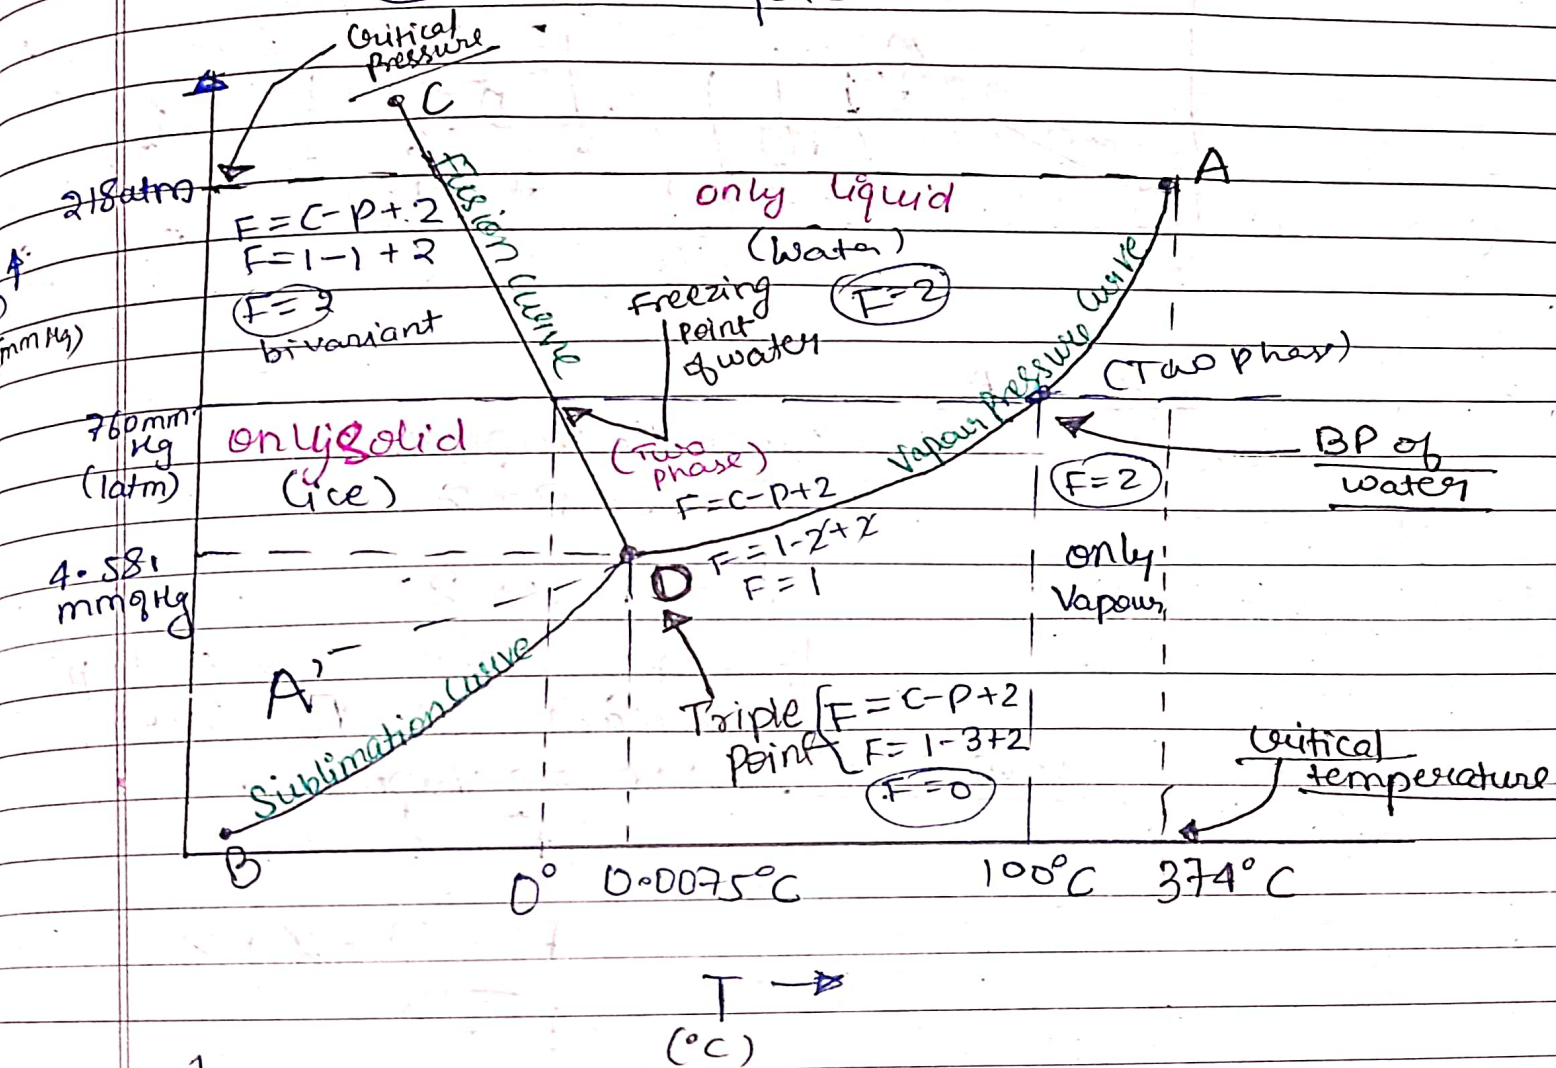 Critical
Pressure
C
A
218atm
Fusion curve
only liquid
(Water)
F=2
F=C-P+2
F=1-1+2
F=2
bivariant
Freezing
point
of water
Vapour Pressure Curve
(Two phase)
mmHg)
760mm
Hg
(1atm)
only solid
(ice)
(Two
phase)
F=C-P+2
F=1-2+2
F=1
F=2
BP of
water
4.581
mm of Hg
O
only
Vapour
A'
Sublimation Curve
Triple
point
F=C-P+2
F=1-3+2
F=0
Critical
temperature
B
0° 0.0075°C 100°C 374°C
T
(°C)